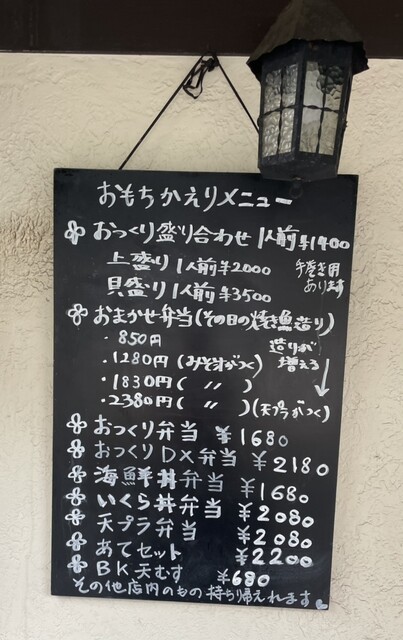 おもちかえりメニュー
おつくり盛り合わせ 1人前 ¥1400
上盛り 1人前 ¥2000
手巻き用
あります
貝盛り 1人前 ¥3500
おまかせ弁当(その日の焼き魚造り)
・850円
・1280円(みそ汁がつく)
造りが
増える
・1830円( 〃 )
・2380円( 〃 )(天プラがつく)
おつくり弁当 ¥1680
おつくりDX弁当 ¥2180
海鮮丼弁当 ¥1680
いくら丼弁当 ¥2080
天プラ弁当 ¥2080
あてセット ¥2200
BK天むす ¥680
その他店内のもの持ち帰えれます